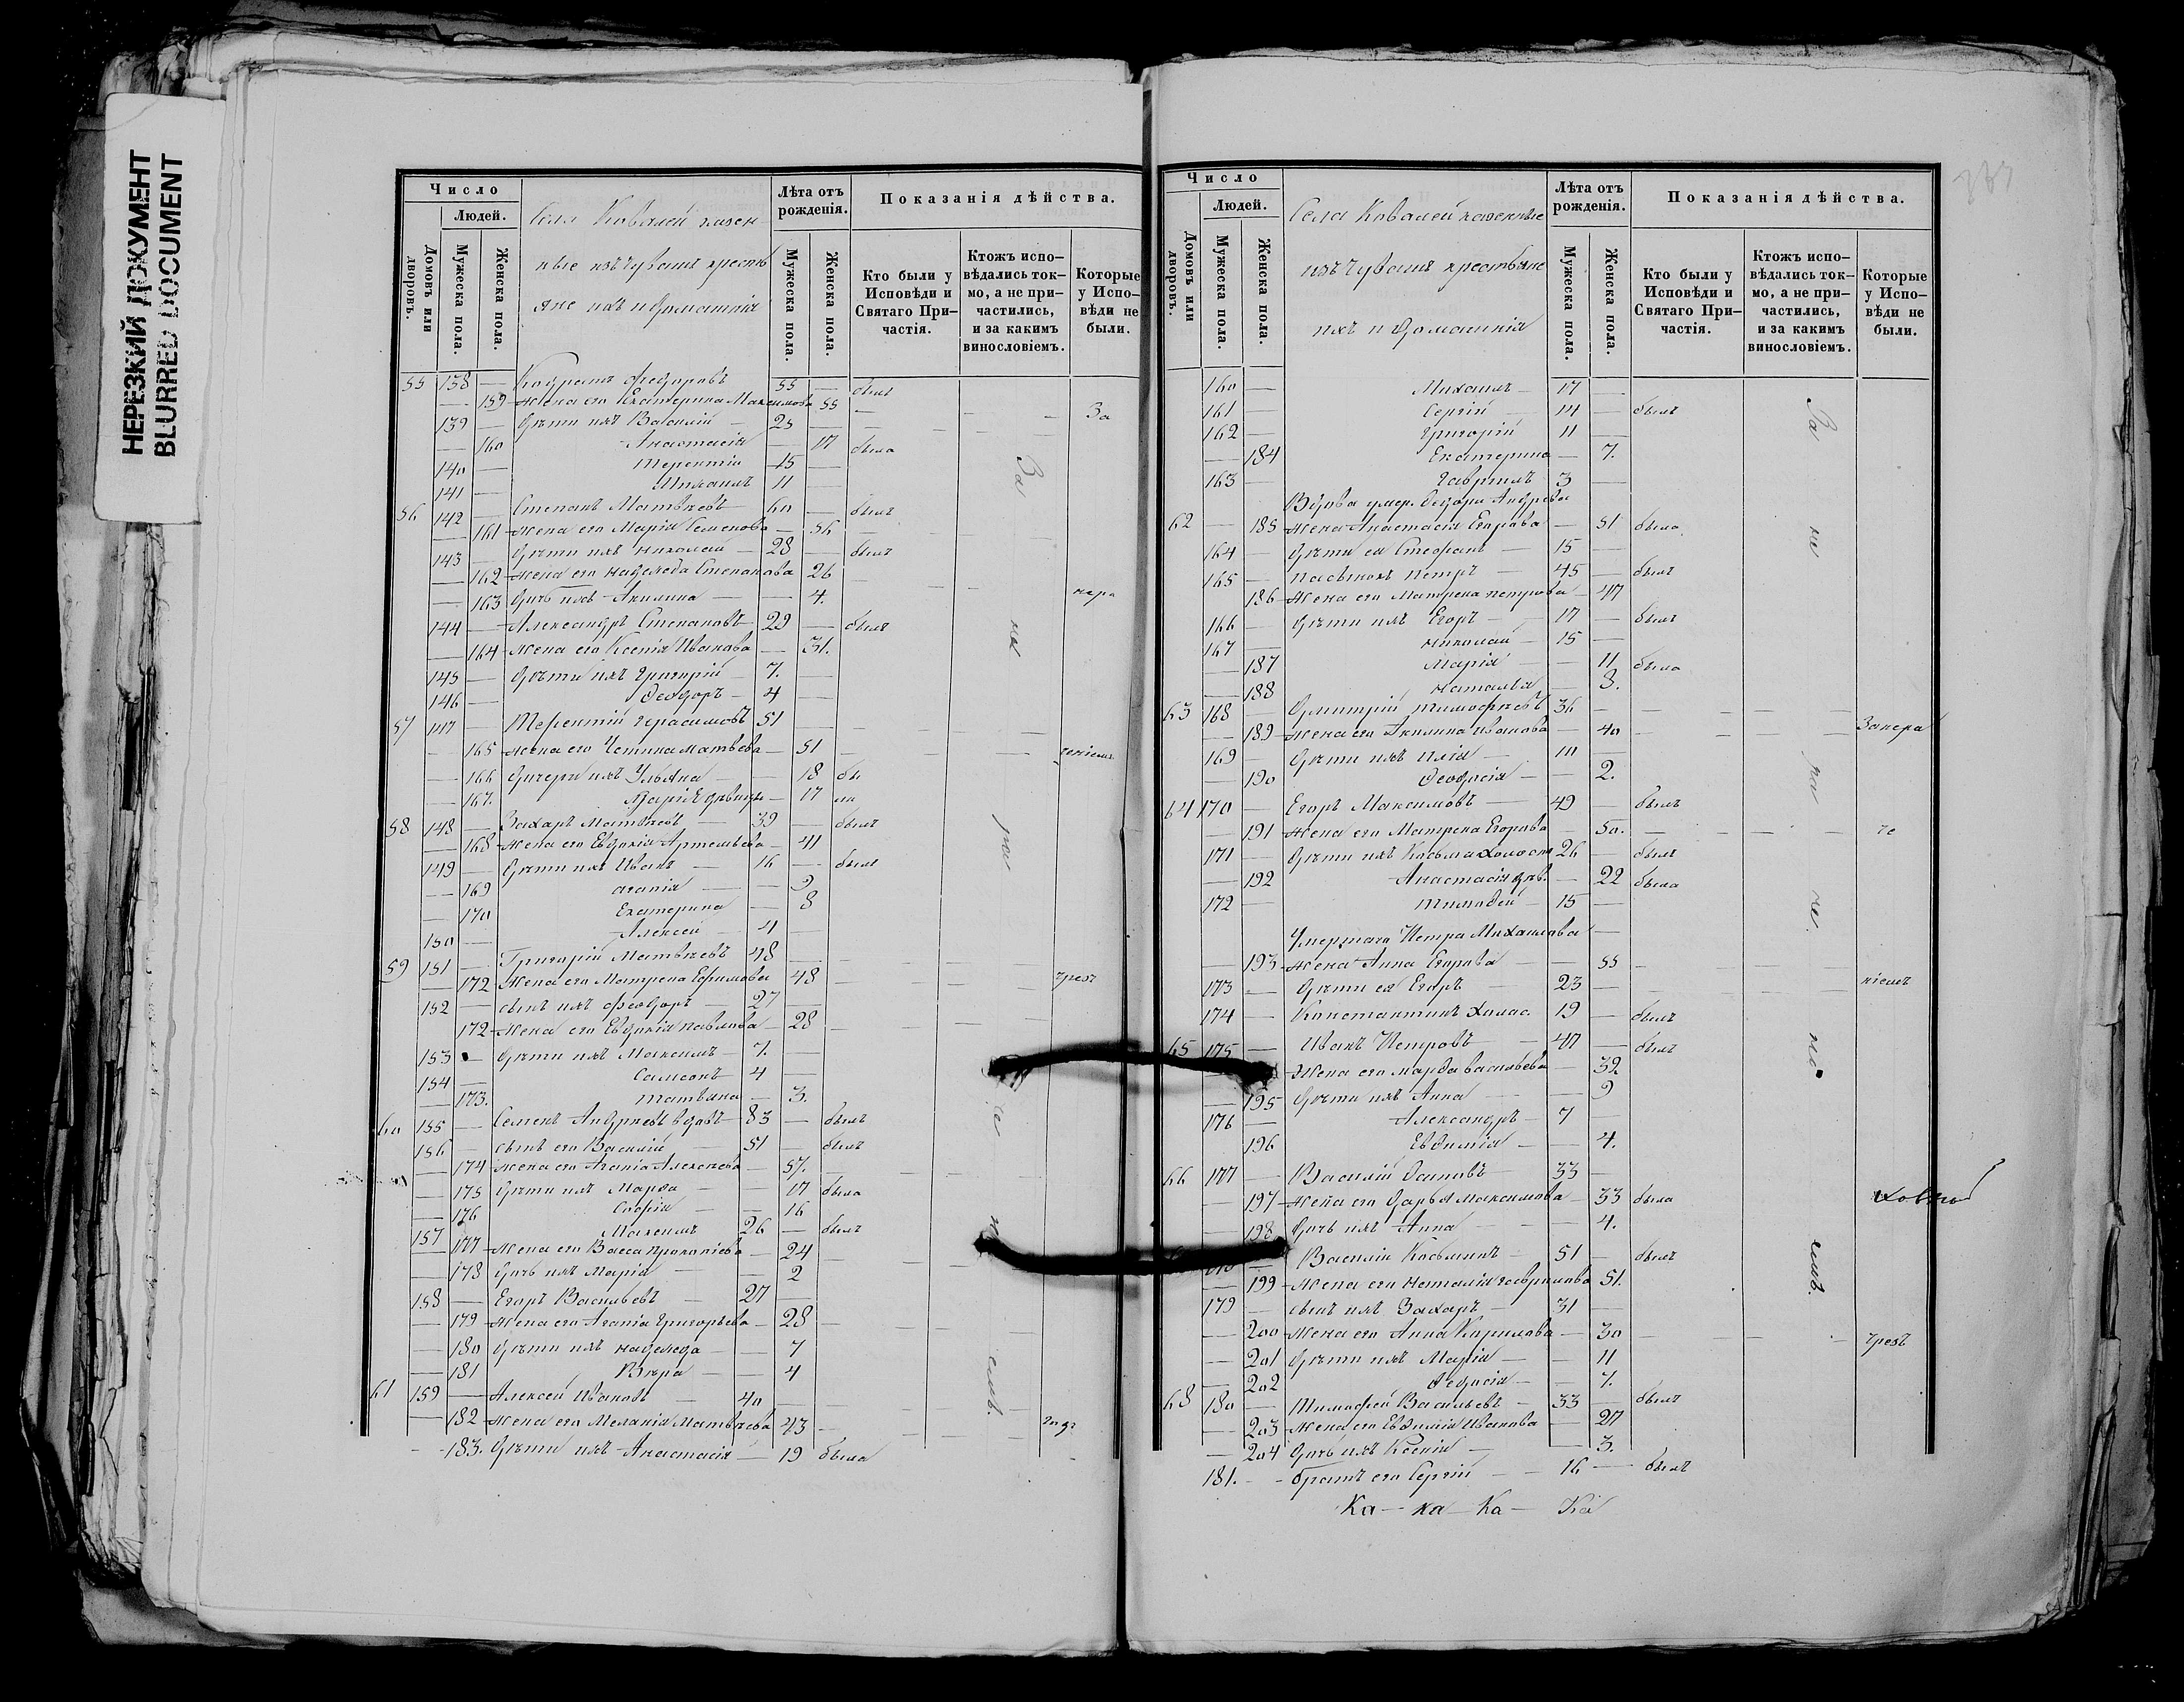 НЕРЕЗКИЙ ДОКУМЕНТ
BLURRED DOCUMENT
Число
Людей.
Домовъ или дворовъ.
Мужеска пола.
Женска пола.
Села Ковалей казен-
ные изъ Чувашъ кресть
яне ихъ и домашнія
Лѣта отъ рожденія.
Мужеска пола.
Женска пола.
Показанія дѣйства.
Кто были у Исповѣди и Святаго При-частія.
Ктожъ испо-вѣдались ток-мо, а не при-частились, и за какимъ винословіемъ.
Которые у Испо-вѣди не были.
55 138 — Кодратъ Ѳедоровъ 55 — былъ
— 159 Жена его Екатерина Максимова 55 — За
139 — Дѣти ихъ Василій — 25 —
— 160 Анастасія — 17 была
140 — Терентій 15 —
141 — Михаилъ 11 —
56 142 — Степанъ Матвѣевъ 60 — былъ
— 161 Жена его Марія Семенова — 56 —
143 — Дѣти ихъ Николай — 28 — былъ
— 162 Жена его Надежда Степанова 26
— 163 Дочь ихъ Акилина — — 4.
144 — Александръ Степановъ 29 — былъ
— 164 Жена его Ксенія Иванова — 31.
145 — Дѣти ихъ Григорій — 7. —
146 — Ѳеодоръ — 4 —
57 147 — Терентій Герасимовъ 51 —
— 165 Жена его Матвѣева — 51 —
— 166 Дочери ихъ Ульяна — — 18 бы
— 167. Марія дѣвицы — 17 ли
58 148 — Захаръ Матвѣевъ — 39 — былъ
— 168 Жена его Евдокія Артемьева — 41
149 — Дѣти ихъ Иванъ — 16 — былъ
— 169 Агапія — — 9
— 170 Екатерина — 8
150 — Алексей — 4 —
59 151 — Григорій Матвѣевъ 48 —
— 172 Жена его Матрена Ефимова 48 — чрез
152 — сынъ ихъ Ѳеодоръ — 27 —
172 Жена его Евдокія Павлова — 28 —
153 — Дѣти ихъ Максимъ — 7. —
154 — Самсонъ 4 —
— 173. Татьяна — 3.
60 155 — Семенъ Андреевъ вдовъ — 83 — былъ
156 — сынъ его Василій 51 — былъ
— 174 Жена его Агапія Алексѣева — 57. —
— 175 Дѣти ихъ Марѳа — — 17 была
— 176 Софія — — 16
157 — Максимъ 26 — былъ
— 177 Жена его Васса Прокопіева — 24 —
— 178 Дочь ихъ Марія — — 2
158 — Егоръ Васильевъ — 27 —
— 179 Жена его Агапія Григорьева — 28 —
— 180 Дѣти ихъ Надежда — — 7
— 181 Вѣра — — 4
61 159 — Алексей Ивановъ — 40
— 182 Жена его Меланія Матвѣева 43 —
— 183. Дѣти ихъ Анастасія — 19 была
Число
Людей.
Домовъ или дворовъ.
Мужеска пола.
Женска пола.
Села Ковалей казенные
изъ Чувашъ крестьяне
ихъ и домашнія
Лѣта отъ рожденія.
Мужеска пола.
Женска пола.
Показанія дѣйства.
Кто были у Исповѣди и Святаго При-частія.
Ктожъ испо-вѣдались ток-мо, а не при-частились, и за какимъ винословіемъ.
Которые у Испо-вѣди не были.
160 — Михаилъ — 17 —
161 — Сергій — 14 — былъ
162 — Григорій 11 —
— 184 Екатерина — 7.
163 — Гавріилъ 3 —
Вдова умер. Ѳедора Андреева
62 — 185 Жена Анастасія Егорова — 51 была
164 — Дѣти ея Стефанъ — 15 —
165 — Пасынокъ Петръ — 45 — былъ
186 Жена его Матрена Петрова — 47
166 — Дѣти ихъ Егоръ — 17 — былъ
167 — Николай — 15 —
— 187 Марія — — 11 была
— 188 Наталья — 3.
63 168 — Дмитрій Тимоѳѣевъ 36 —
— 189 Жена его Акилина Иванова — 40 — Занера
169 — Дѣти ихъ Илія — 10 —
— 190 Ѳеодосія — — 2.
64 170 — Егоръ Максимовъ — 49 — былъ
— 191 Жена его Матрена Егорова — 50. — че
171 — Дѣти ихъ Косьма холостъ 26 — былъ
— 192 Анастасія дѣв. — 22 была
172 — Тимоѳей — 15 —
Умершаго Петра Михаилова —
— 193 Жена Анна Егорова — — 55 —
173 — Дѣти ея Егоръ — 23 — ніемъ
174 — Константинъ холос. 19 — былъ
65 175 — Иванъ Петровъ — 47 — былъ
Жена его Марѳа Васильева — 39
— 195 Дѣти ихъ Анна — — 9
176 — Александръ — 7 —
196 Евѳимія — — 4.
66 177 — Василій Осиповъ — 33 —
— 197 Жена его Дарья Максимова — 33 была
— 198 Дочь ихъ Анна — — 4.
Василій Косьминъ — 51 — былъ
— 199 Жена его Наталія Гаврилова 51.
179 — сынъ ихъ Захаръ — 31 —
— 200 Жена его Анна Кирилова — 30 — чрезъ
— 201 Дѣти ихъ Марія — — 11
— 202 Ѳедосія — — 7.
68 180 — Тимоѳей Васильевъ — 33 — былъ
— 203 Жена его Евѳимія Иванова — 27
— 204 Дочь ихъ Ксенія — — 3.
181. — братъ его Сергій — — 16 — былъ
Ка — ка — Ка — Ка